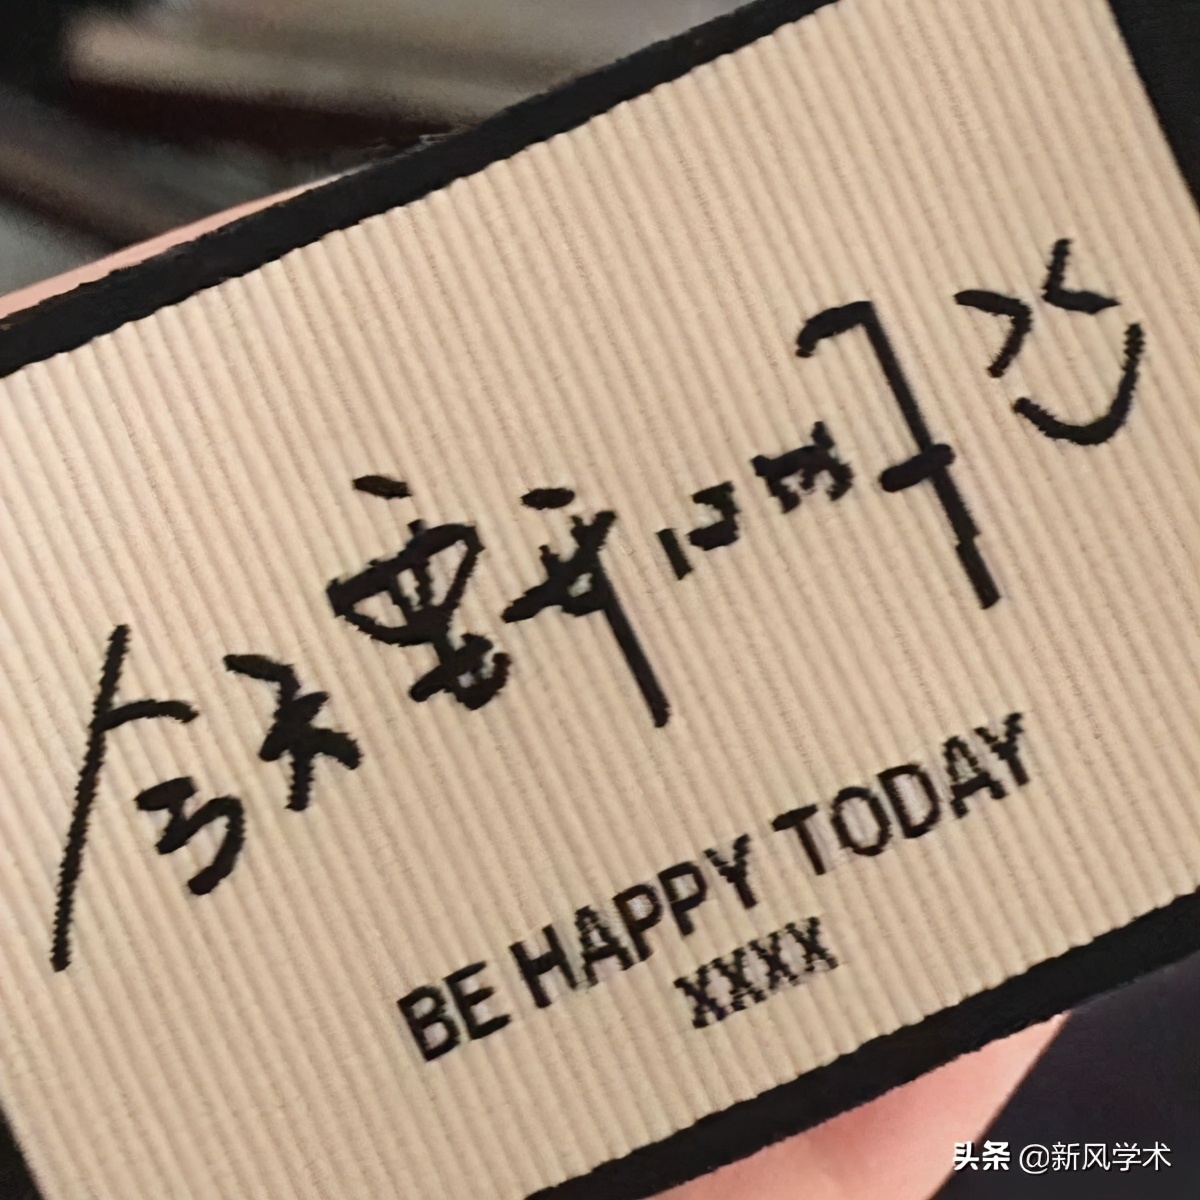 今天要开心呀
BE HAPPY TODAY
XXXX
头条 @新风学术